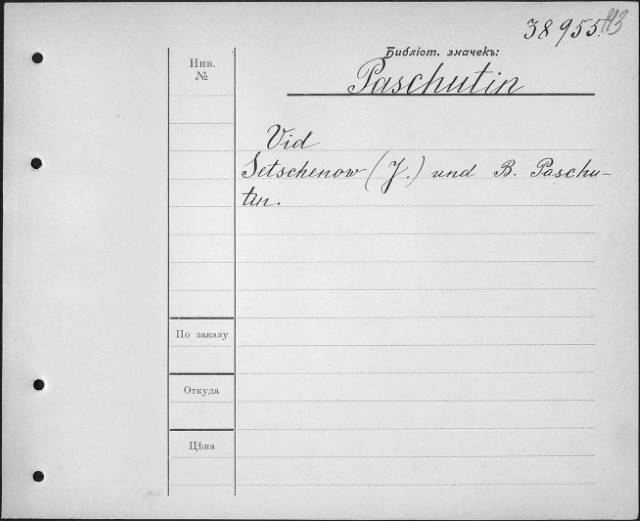 38955.
Библіот. значекъ:
Инв.
№
Paschutin
Vid
Setschenow (J.) und B. Paschu-
tin.
По заказу
Откуда
Цѣна